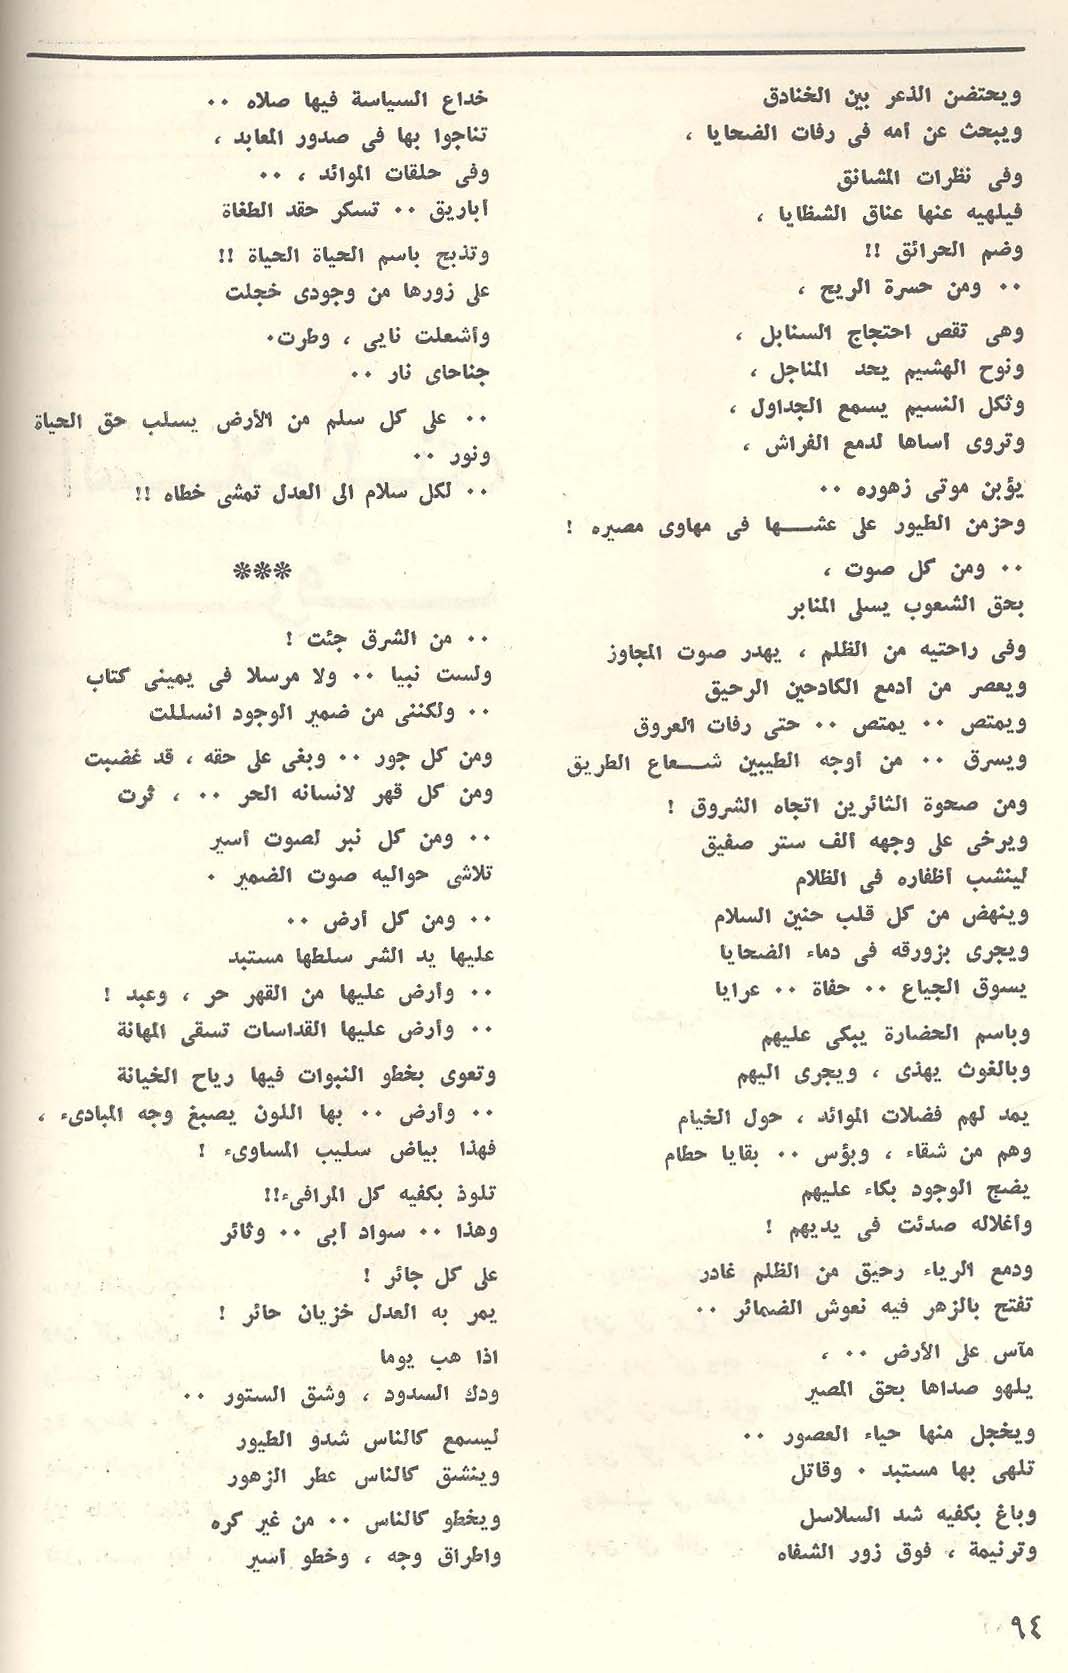 ويحتضن الذعر بين الخنادق
ويبحث عن أمه فى رفات الضحايا ،
وفى نظرات المشانق
فيلهيه عنها عناق الشظايا ،
وضم الحرائق !!
٠٠ ومن حسرة الريح ،
وهى تقص احتجاج السنابل ،
ونوح الهشيم يحد المناجل ،
وثكل النسيم يسمع الجداول ،
وتروى أساها لدمع الفراش ،
يؤبن موتى زهوره ٠٠
وحزمن الطيور على عشها فى مهاوى مصيره !
٠٠ ومن كل صوت ،
بحق الشعوب يسلى المنابر
وفى راحتيه من الظلم ، يهدر صوت المجاوز
ويعصر من أدمع الكادحين الرحيق
ويمتص ٠٠ يمتص ٠٠ حتى رفات العروق
ويسرق ٠٠ من أوجه الطيبين شعاع الطريق
ومن صحوة الثائرين اتجاه الشروق !
ويرخى على وجهه ألف ستر صفيق
لينشب أظفاره فى الظلام
وينهض من كل قلب حنين السلام
ويجرى بزورقه فى دماء الضحايا
يسوق الجياع ٠٠ حفاة ٠٠ عرايا
وباسم الحضارة يبكى عليهم
وبالغوث يهذى ، ويجرى اليهم
يمد لهم فضلات الموائد ، حول الخيام
وهم من شقاء ، وبؤس ٠٠ بقايا حطام
يضج الوجود بكاء عليهم
وأغلاله صدئت فى يديهم !
ودمع الرياء رحيق من الظلم غادر
تفتح بالزهر فيه نعوش الضمائر ٠٠
مآس على الأرض ٠٠ ،
يلهو صداها بحق المصير
ويخجل منها حياء العصور ٠٠
تلهى بها مستبد ٠ وقاتل
وباغ بكفيه شد السلاسل
وترنيمة ، فوق زور الشفاه
خداع السياسة فيها صلاه ٠٠
تناجوا بها فى صدور المعابد ،
وفى حلقات الموائد ، ٠٠
أباريق ٠٠ تسكر حقد الطغاة
وتذبح باسم الحياة الحياة !!
على زورها من وجودى خجلت
وأشعلت نايى ، وطرت٠
جناحاى نار ٠٠
٠٠ على كل سلم من الأرض يسلب حق الحياة
ونور ٠٠
٠٠ لكل سلام الى العدل تمشى خطاه !!
***
٠٠ من الشرق جئت !
ولست نبيا ٠٠ ولا مرسلا فى يمينى كتاب
٠٠ ولكننى من ضمير الوجود انسللت
ومن كل جور ٠٠ وبغى على حقه ، قد غضبت
ومن كل قهر لانسانه الحر ٠٠ ، ثرت
٠٠ ومن كل نبر لصوت أسير
تلاشى حواليه صوت الضمير ٠
٠٠ ومن كل أرض ٠٠
عليها يد الشر سلطها مستبد
٠٠ وأرض عليها من القهر حر ، وعبد !
٠٠ وأرض عليها القداسات تسقى المهانة
وتعوى بخطو النبوات فيها رياح الخيانة
٠٠ وأرض ٠٠ بها اللون يصبغ وجه المبادىء ،
فهذا بياض سليب المساوىء !
تلوذ بكفيه كل المرافىء!!
وهذا ٠٠ سواد أبى ٠٠ وثائر
على كل جائر !
يمر به العدل خزيان حائر !
اذا هب يوما
ودك السدود ، وشق الستور ٠٠
ليسمع كالناس شدو الطيور
وينشق كالناس عطر الزهور
ويخطو كالناس ٠٠ من غير كره
واطراق وجه ، وخطو أسير
٩٤